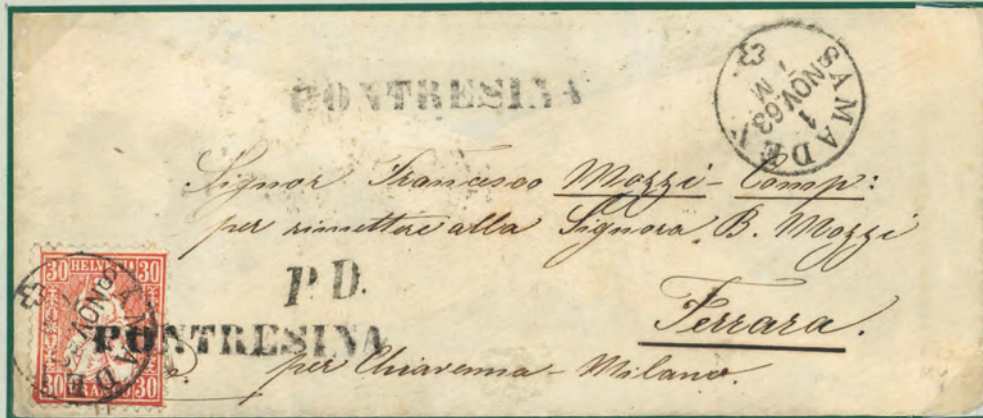 PONTRESINA
SAMADEN
1 NOV 63
M
Signor Francesco Mozzi - Comp:
per rimettere alla Signora B. Mozzi
Ferrara.
P.D.
PONTRESINA
per Chiavenna - Milano.
30 HELVETIA 30
30 FRANCO 30
SAMADE
NOV